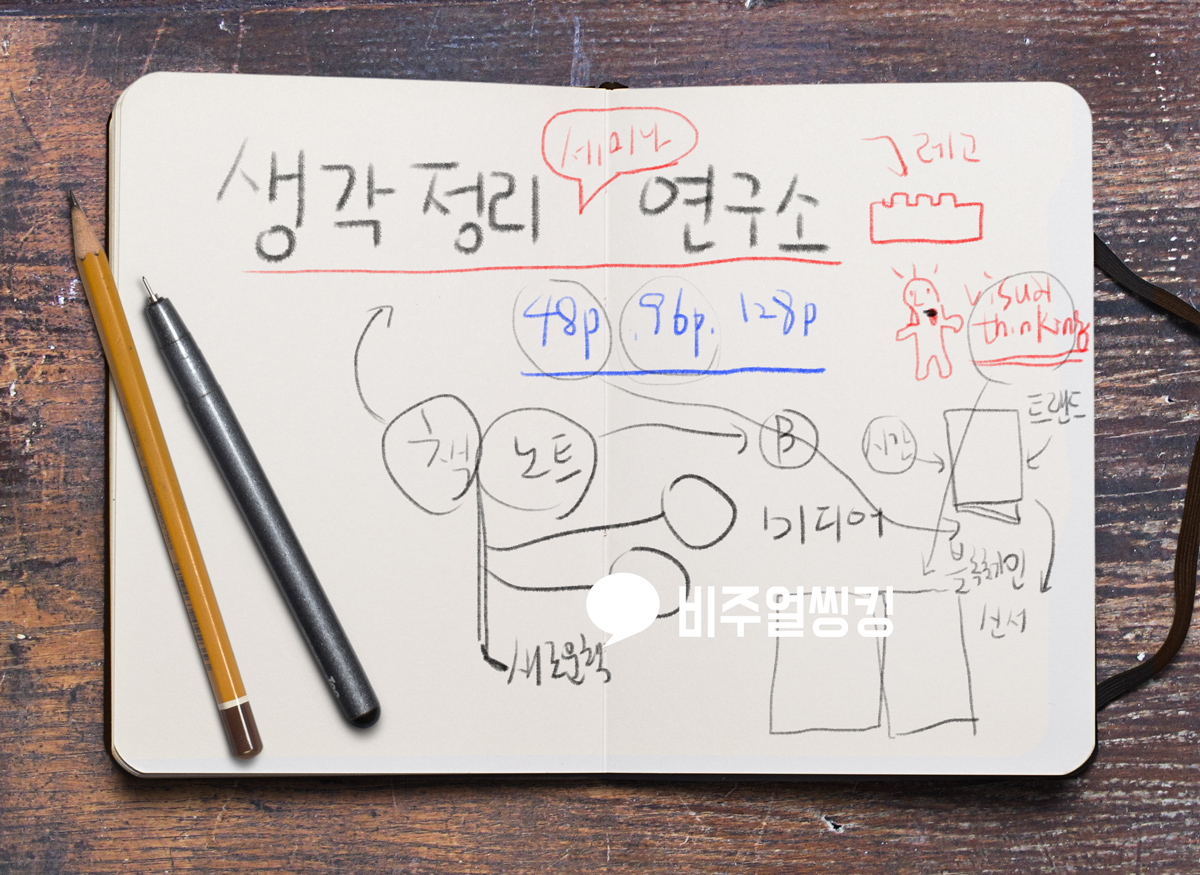 세미나
생각정리 연구소
레고
48p 96p. 128p
visual
thinking
책 노트
B
시간
트랜드
미디어
블록체인
새로운책
비주얼씽킹